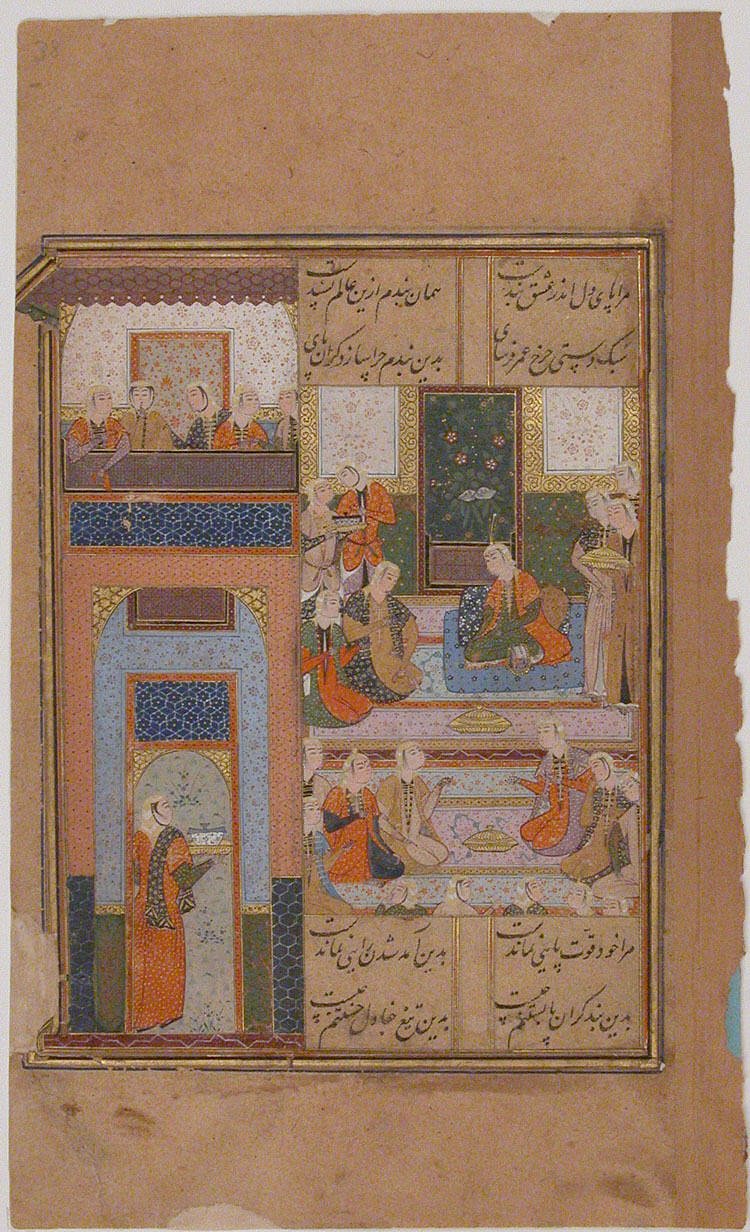 38
مرا پای دل اندر عشق بندست همان بندم ازین عالم پسندست
سبک دستی چرخ عمر فرسای بدین بندم چرا سازد گران پای
مرا خود قوت پایی نماندست بدین آمد شدن رایی نماندست
بدین بند گران پا بستنم چیست بدین تیغ جفا دل خستنم چیست